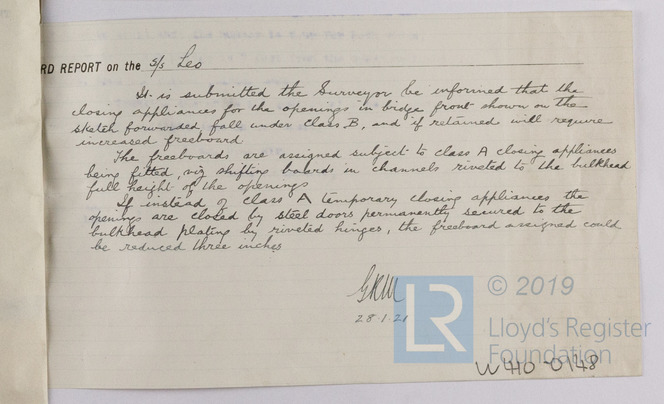 RD REPORT on the S/S Leo
It is submitted the Surveyor be informed that the
closing appliances for the openings in bridge front shown on the
sketch forwarded, fall under Class B, and if retained will require
increased freeboard
The freeboards are assigned subject to class A closing appliances
being fitted, viz shifting boards in channels riveted to the bulkhead
full height of the openings
If instead of class A temporary closing appliances the
openings are closed by steel doors permanently secured to the
bulkhead plating by riveted hinges, the freeboard assigned could
be reduced three inches
28.1.21
LR
© 2019
Lloyd's Register
Foundation
W410-0148